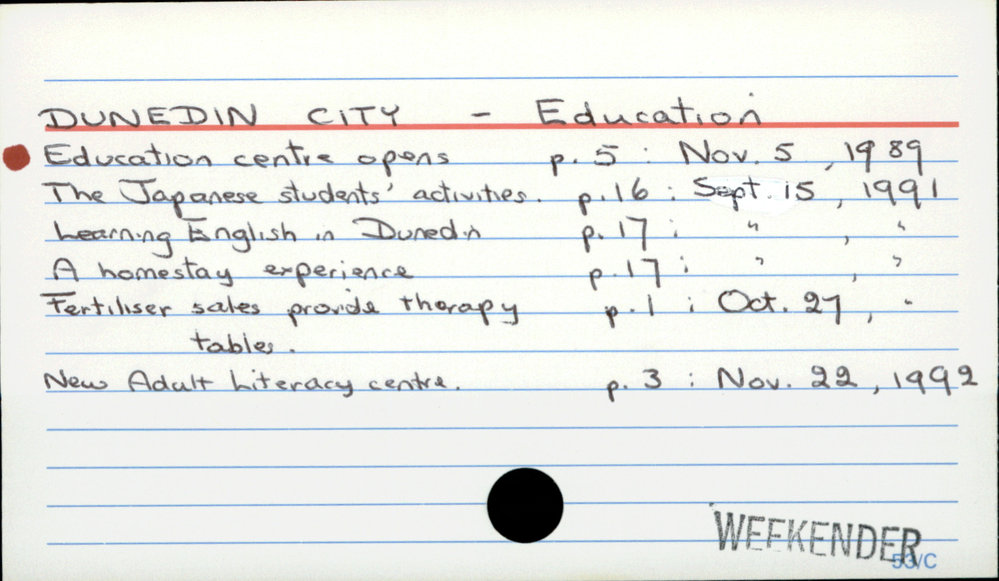 DUNEDIN CITY - Education
Education centre opens p. 5 : Nov. 5 , 1989
The Japanese students' activities. p.16 : Sept. 15 , 1991
Learning English in Dunedin p. 17 : " , "
A homestay experience p.17 : " , "
Fertiliser sales provide therapy p. 1 : Oct. 27 , "
tables.
New Adult Literacy centre. p. 3 : Nov. 22 , 1992
WEEKENDER
53/C